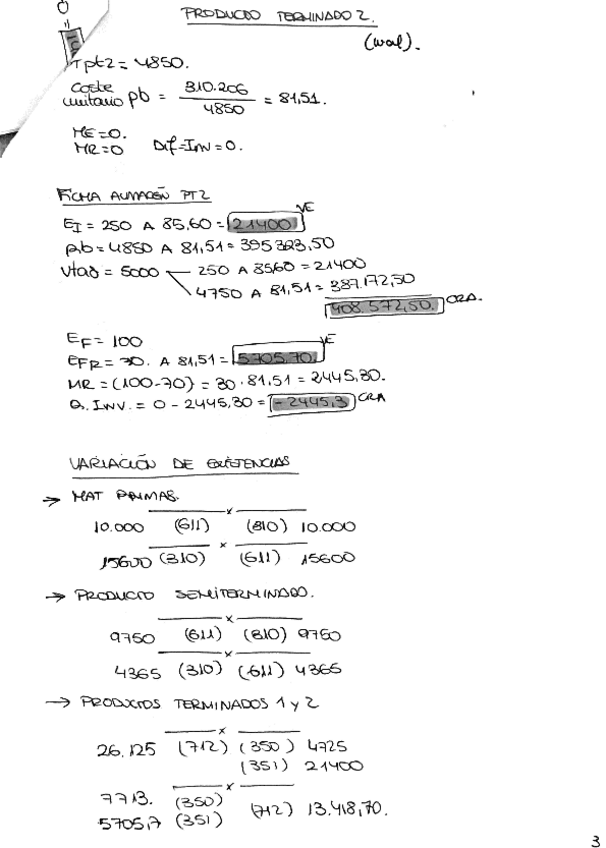 PRODUCTO TERMINADO 2.
(real).
Tpt2 = 4850.
Coste unitario pb = 310.206 / 4850 = 81,51.
ME = 0.
MR = 0 Dif-Inv = 0.
FICHA ALMACÉN PT2
VE
EI = 250 A 85,60 = 21400
pb = 4850 A 81,51 = 395323,50
Vtas = 5000 250 A 85,60 = 21400
4750 A 81,51 = 387.172,50
408.572,50. CRA.
EF = 100
VE
EFR = 70. A 81,51 = 5705,70
MR = (100-70) = 30 · 81,51 = 2445,30.
D. INV. = 0 - 2445,30 = -2445,3 CRA
VARIACIÓN DE EXISTENCIAS
→ MAT PRIMAS.
x
10.000 (611) (310) 10.000
x
15600 (310) (611) 15600
→ PRODUCTO SEMITERMINADO.
x
9750 (611) (310) 9750
x
4365 (310) (611) 4365
→ PRODUCTOS TERMINADOS 1 y 2
x
26.125 (712) (350) 4725
(351) 21400
x
7713. (350)
(712) 13.418,70.
5705,7 (351)
3